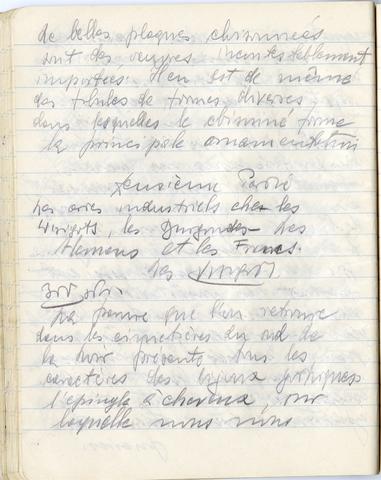 de belles plaques chinonnées
sont des œuvres incontestablement
importées. Il en est de même
des fibules de formes diverses
dans lesquelles le chinonné forme
la principale ornementation
Deuxième Partie
Les arts industriels chez les
Wisigots, les Burgondes les
Alemans et les Francs.
Les Wisigots
que l'on retrouve
dans les cimetières du sud de
la présente tous les
caractères des bijoux gothiques
l'épingle à cheveux, sur
laquelle nous nous